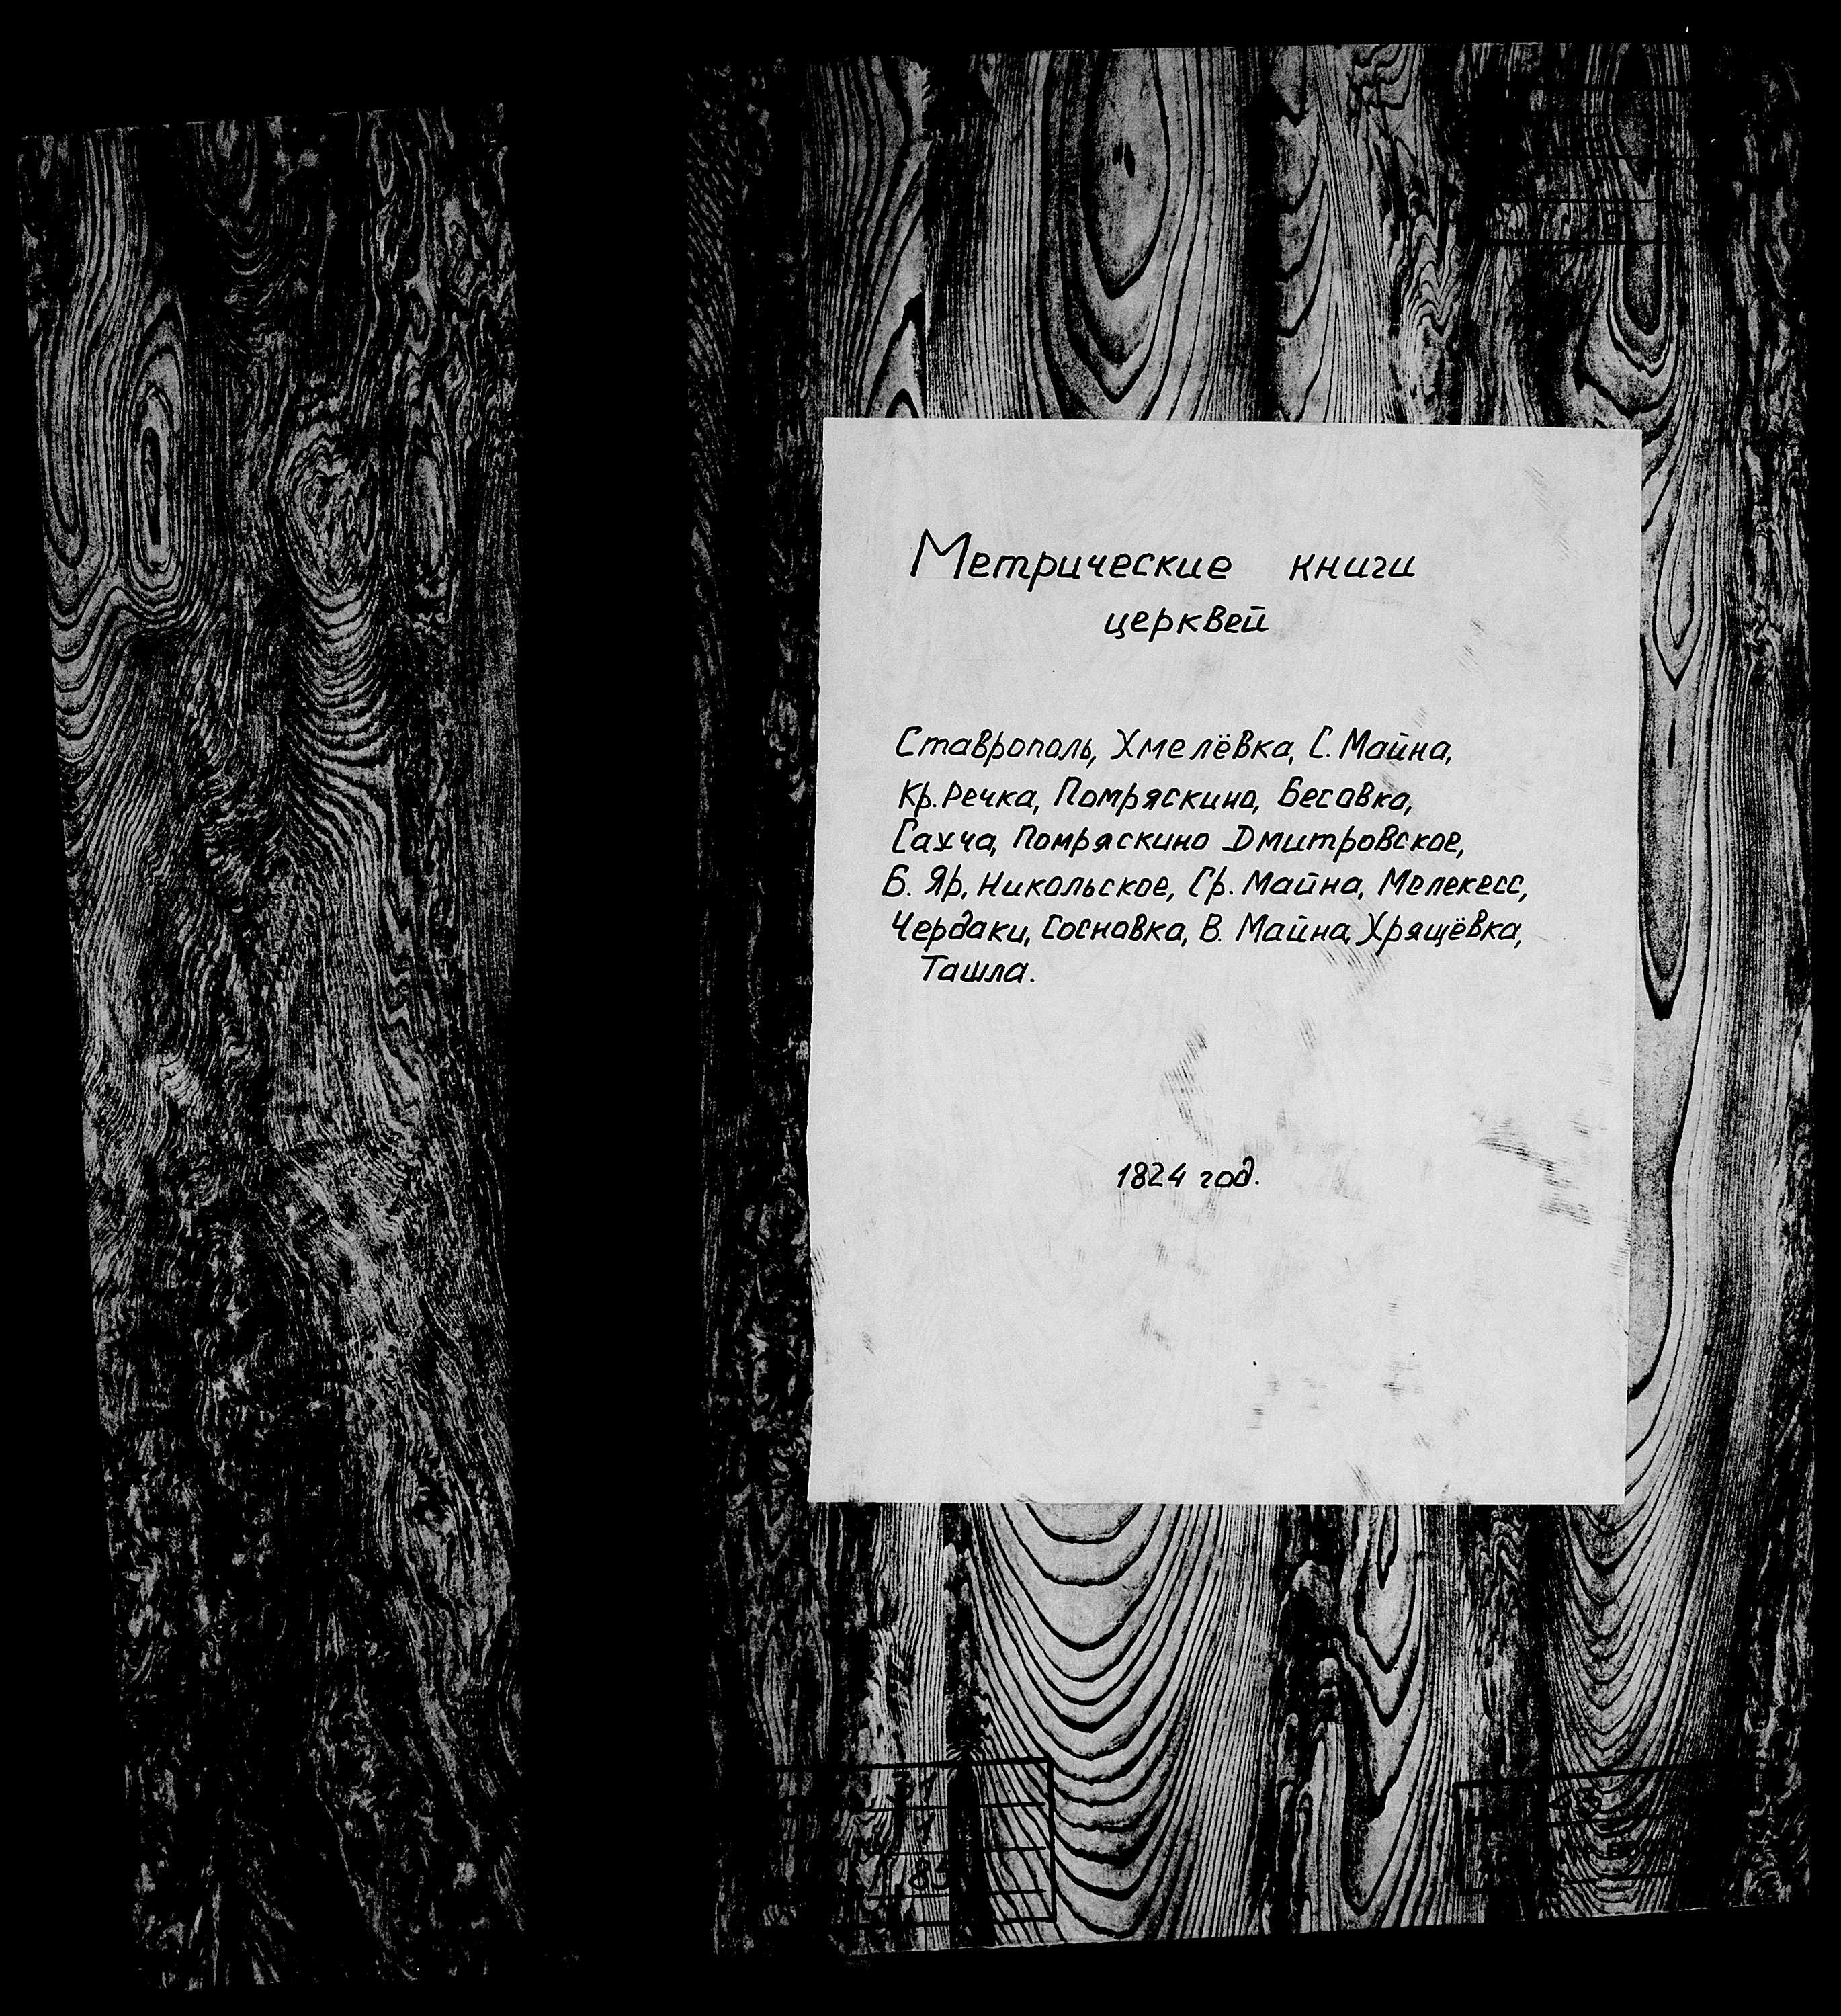 Метрические книги
церквей
Ставрополь, Хмелёвка, С. Майна,
Кр. Речка, Помряскино, Бесовка,
Сахча, Помряскино Дмитровское,
Б. Яр, Никольское, Ср. Майна, Мелекесс,
Чердаки, Сосновка, В. Майна, Хрящёвка,
Ташла.
1824 год.